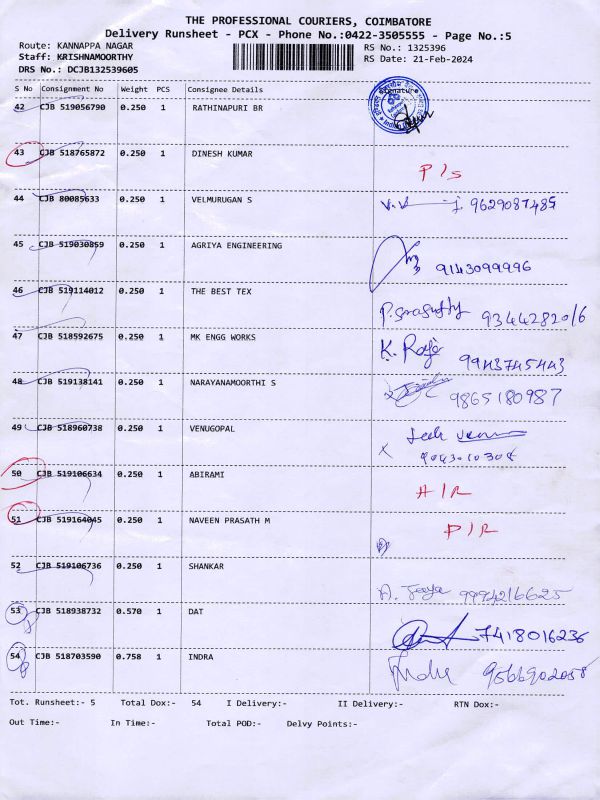 THE PROFESSIONAL COURIERS, COIMBATORE
Delivery Runsheet - PCX - Phone No.:0422-3505555 - Page No.:5
Route: KANNAPPA NAGAR
RS No.: 1325396
Staff: KRISHNAMOORTHY
RS Date: 21-Feb-2024
DRS No.: DCJB132539605
S No Consignment No Weight PCS Consignee Details Signature
42 CJB 519056790 0.250 1 RATHINAPURI BR
43 CJB 518765872 0.250 1 DINESH KUMAR
P/S
44 CJB 80085633 0.250 1 VELMURUGAN S
9629087485
45 CJB 519030859 0.250 1 AGRIYA ENGINEERING
9143099996
46 CJB 519114012 0.250 1 THE BEST TEX
9344282016
47 CJB 518592675 0.250 1 MK ENGG WORKS
K. Raja 9943745443
48 CJB 519138141 0.250 1 NARAYANAMOORTHI S
9865180987
49 CJB 518960738 0.250 1 VENUGOPAL
50 CJB 519106634 0.250 1 ABIRAMI
A/R
51 CJB 519164045 0.250 1 NAVEEN PRASATH M
P/R
52 CJB 519106736 0.250 1 SHANKAR
A. Jaya 9994216625
53 CJB 518938732 0.570 1 DAT
7418016236
54 CJB 518703590 0.758 1 INDRA
9566902058
Tot. Runsheet:- 5 Total Dox:- 54 I Delivery:- II Delivery:- RTN Dox:-
Out Time:- In Time:- Total POD:- Delvy Points:-